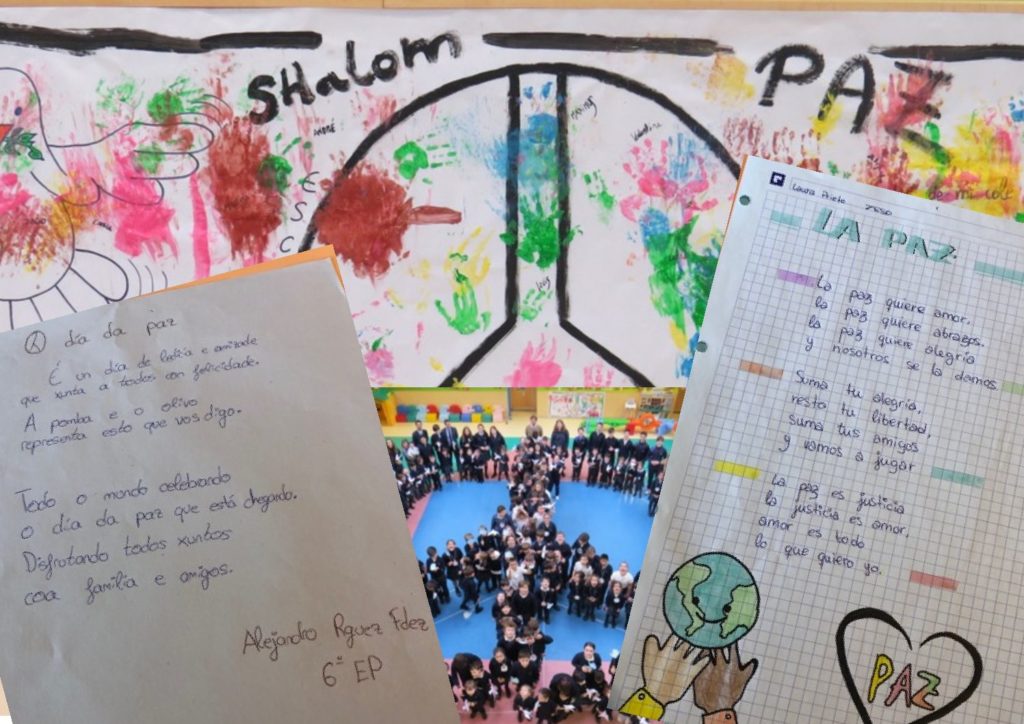 SHaLom
PAZ
ANDRÉ
E
S
C
de mi cole
día da paz
É un día de ledicia e amizade
que xunta a todos con felicidade.
A pomba e o olivo
representa esto que vos digo.
Todo o mundo celebrando
o día da paz que está chegando.
Disfrutando todos xuntos
coa familia e amigos.
Alejandro Rguez Fdez
6º EP
Laura Prieto 2ºESO
LA PAZ
La paz quiere amor,
la paz quiere abrazos.
la paz quiere alegría
y nosotros se la damos.
Suma tu alegría,
resta tu libertad,
suma tus amigos
y vamos a jugar
La paz es justicia
la justicia es amor,
amor es todo
lo que quiero yo.
PAZ